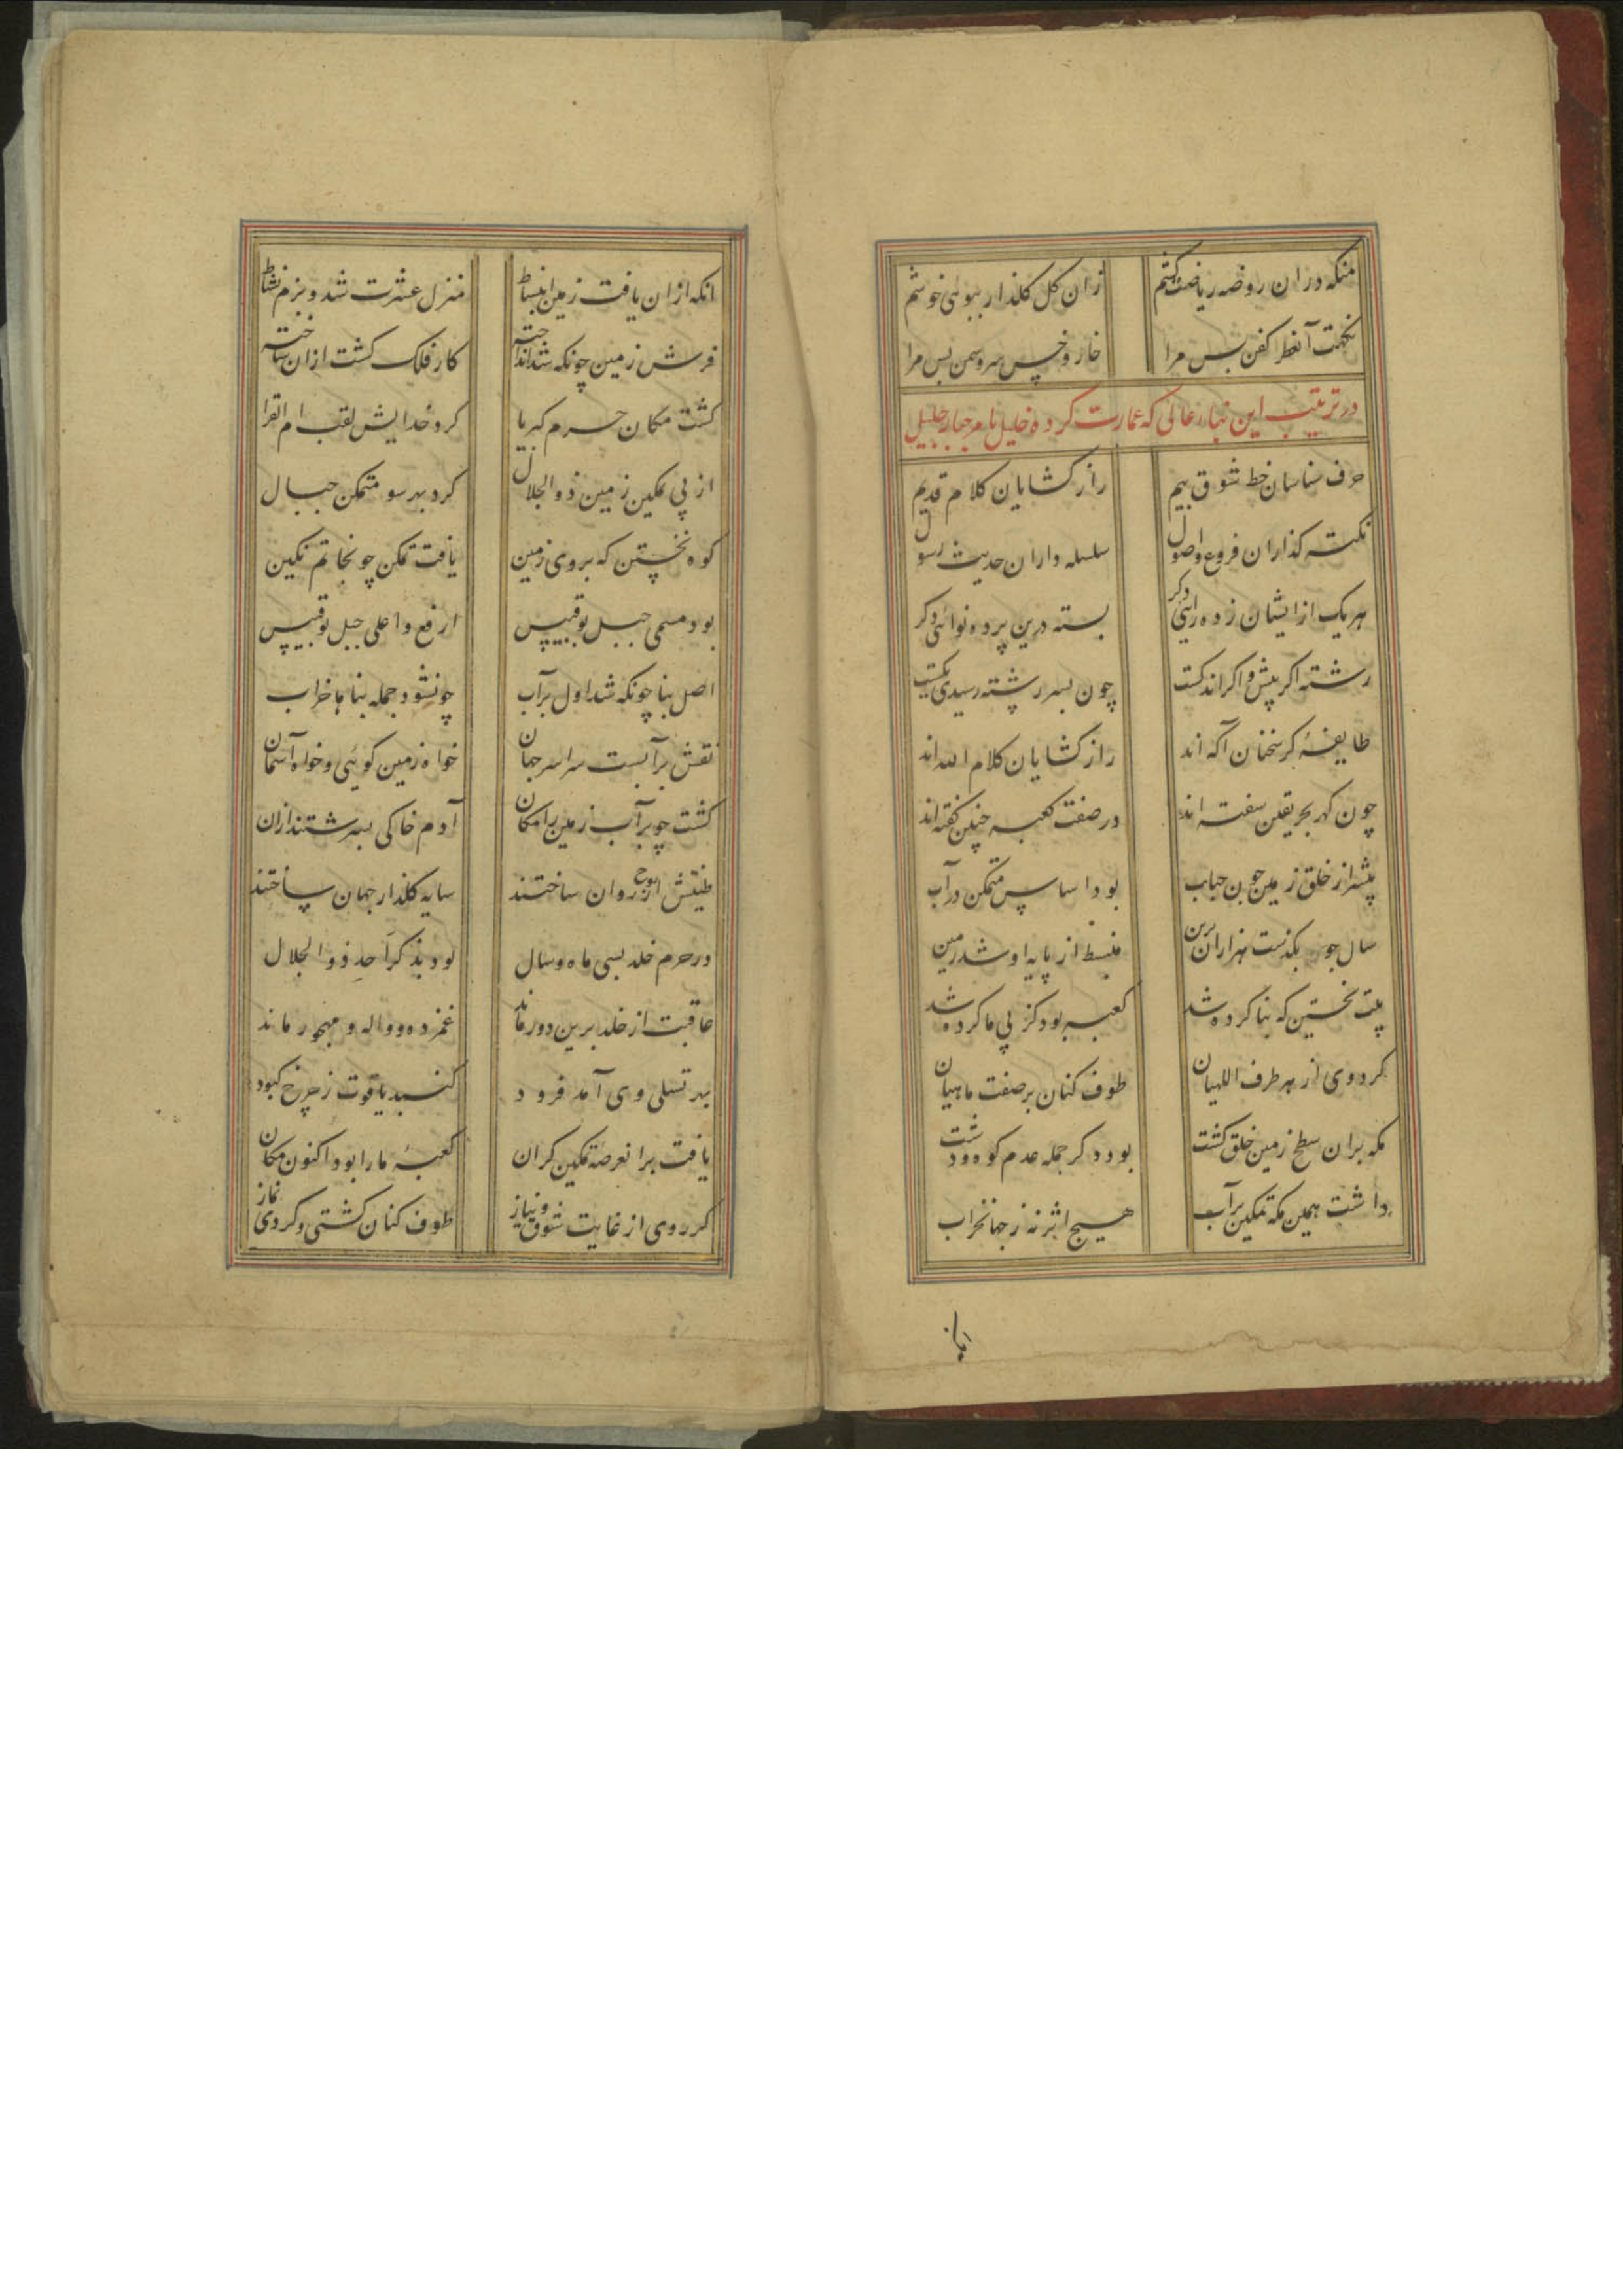 منکه دران روضه ریاضت کشم زان گل گلذار ببوئی خوشم
نکهت آنعطر کفن بس مرا خار و خس سر و سمن بس مرا
در ترتیب این بنار عالی که عمارت کرده خلیل بامر جبار جلیل
حرف شناسان خط شوق بیم راز کشایان کلام قدیم
نکته کذاران فروع و اصول سلسله داران حدیث رسول
هر یک ازایشان زده رائی دکر بسته درین پرده نوائی دکر
رشته اکر بیش و اکر اندکست چون بسر رشته رسیدی یکیست
طایفهٔ کز سخنان آکه اند راز کشایان کلام الله اند
چون کهر بحر یقین سفته اند در صفت کعبه چنین کفته اند
پیشتر از خلق زمین چون حباب بود اساس متمکن در آب
سال چو بکذشت هزاران برین منبسط از پایه او شد زمین
بیت نخستین که بنا کرده شد کعبه بود کز پی ما کرده شد
کرد وی از هر طرف اللهیان طوف کنان بر صفت ماهیان
مکه بران سطح زمین خلق کشت بود دکر جمله عدم کوه و دشت
داشت همین مکه تمکین بر آب هیچ اثر نه ز جهانخراب
انکه ازان یافت زمین انبساط منزل عشرت شد و بزم نشاط
فرش زمین چونکه شد انداخته کار فلک کشت ازان ساخته
کشت مکان حرم کبریا کرد خدایش لقب ام القرا
از پی تمکین زمین ذو الجلال کرد بهر سو متمکن جبال
کوه نخستین که بروی زمین یافت تمکن چو بخاتم نکین
بود مسمی جبل بوقبیس ارفع و اعلی جبل بوقبیس
اصل بنا چونکه شد اول بر آب چو نشود جمله بناها خراب
نقش بر آبست سراسر جهان خواه زمین کوئی و خواه آسمان
کشت چو بر آب زمین را مکان آدم خاکی بسرشتند ازان
طینتش از روح روان ساختند سایه کلذار جهان ساختند
در حرم خلد بسی ماه و سال بود بذکر احد ذو الجلال
عاقبت از خلد برین دور ماند غمزده و واله و مهجور ماند
بهر تسلی وی آمد فرود کنبد یاقوت ز چرخ کبود
یافت برا نعرصه تمکین کران کعبهٔ ما را بود اکنون مکان
کرد وی از غایت شوق و نیاز طوف کنان کشتی و کردی نماز